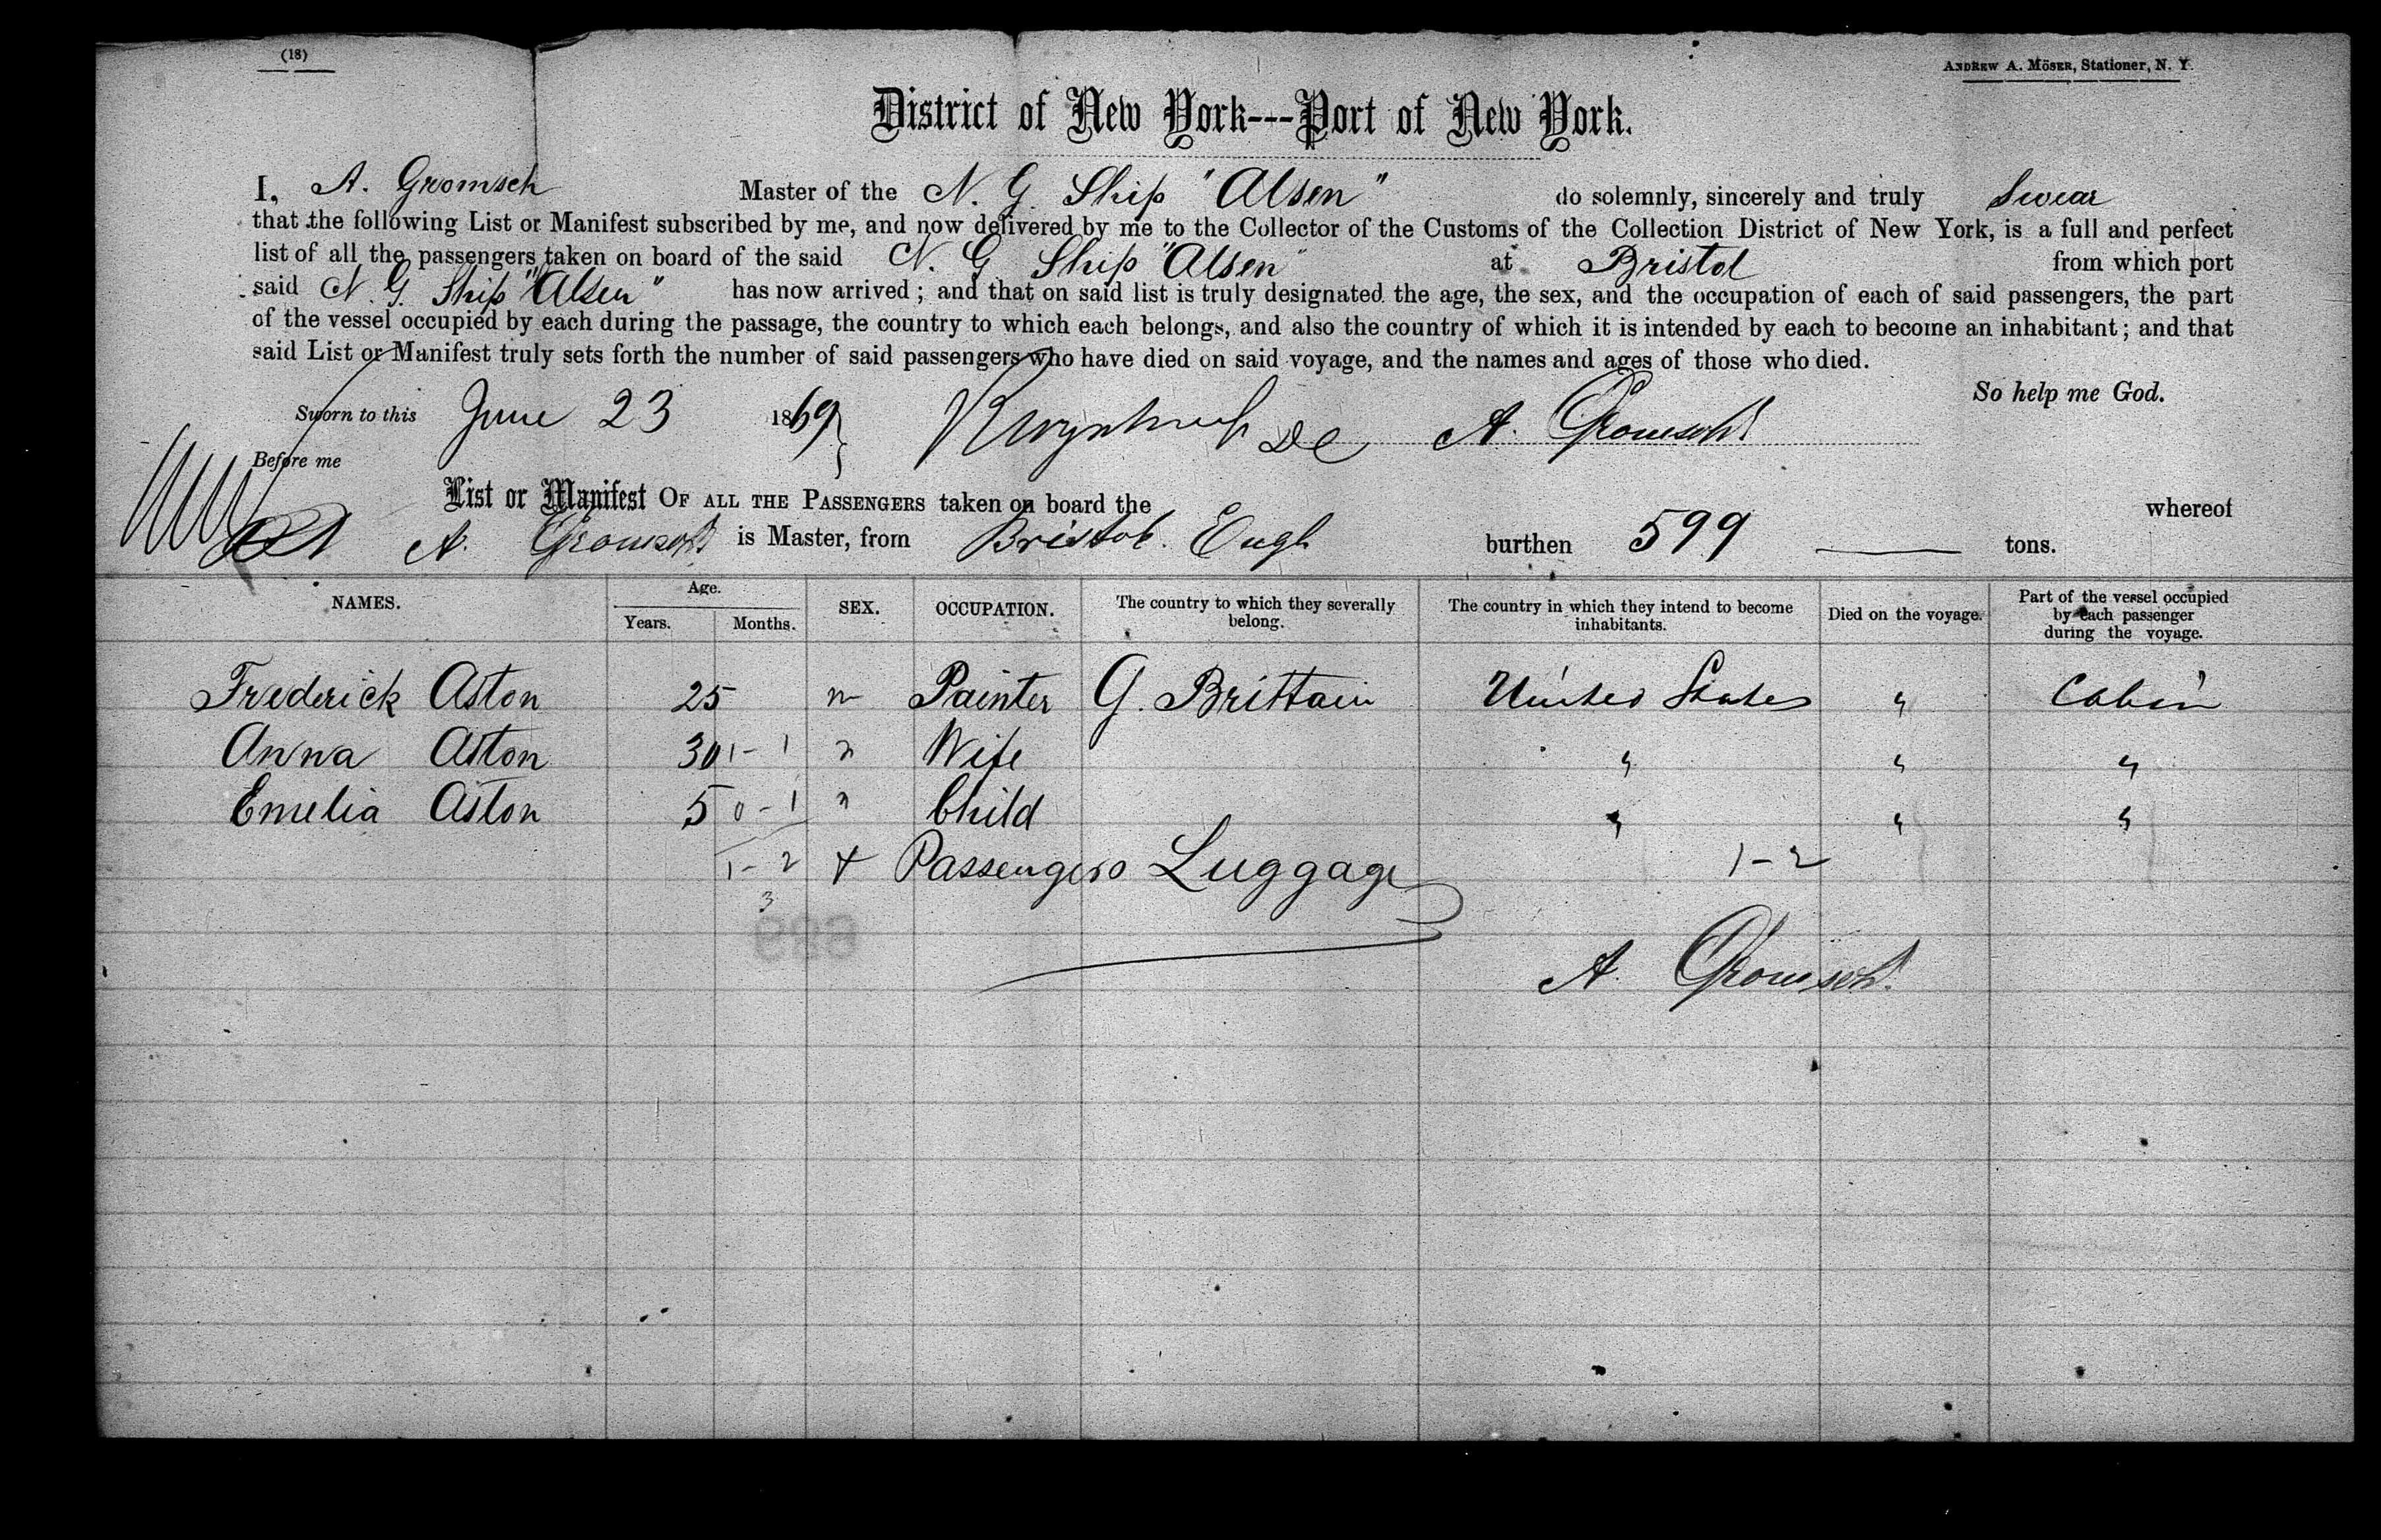 (18)
ANDREW A. MÖSER, Stationer, N. Y.
District of New York---Port of New York.
I, A. Gromsch Master of the N. G. Ship "Alsen" do solemnly, sincerely and truly Swear
that the following List or Manifest subscribed by me, and now delivered by me to the Collector of the Customs of the Collection District of New York, is a full and perfect
list of all the passengers taken on board of the said N. G. Ship "Alsen" at Bristol from which port
said N. G. Ship "Alsen" has now arrived; and that on said list is truly designated the age, the sex, and the occupation of each of said passengers, the part
of the vessel occupied by each during the passage, the country to which each belongs, and also the country of which it is intended by each to become an inhabitant; and that
said List or Manifest truly sets forth the number of said passengers who have died on said voyage, and the names and ages of those who died.
So help me God.
Sworn to this June 23 1869 A. Gromsch
Before me
List or Manifest OF ALL THE PASSENGERS taken on board the whereof
A. Gromsch is Master, from Bristol. Engl burthen 599 tons.
NAMES. Age. Years. Months. SEX. OCCUPATION. The country to which they severally belong. The country in which they intend to become inhabitants. Died on the voyage. Part of the vessel occupied by each passenger during the voyage.
Frederick Aston 25 m Painter G. Brittain United States " Cabin
Anna Aston 30 1 - 1 " Wife " " "
Emelia Aston 5 0 - 1 " Child " " "
1 - 2 + Passengers Luggage 1 - 2
3
689
A. Gromsch